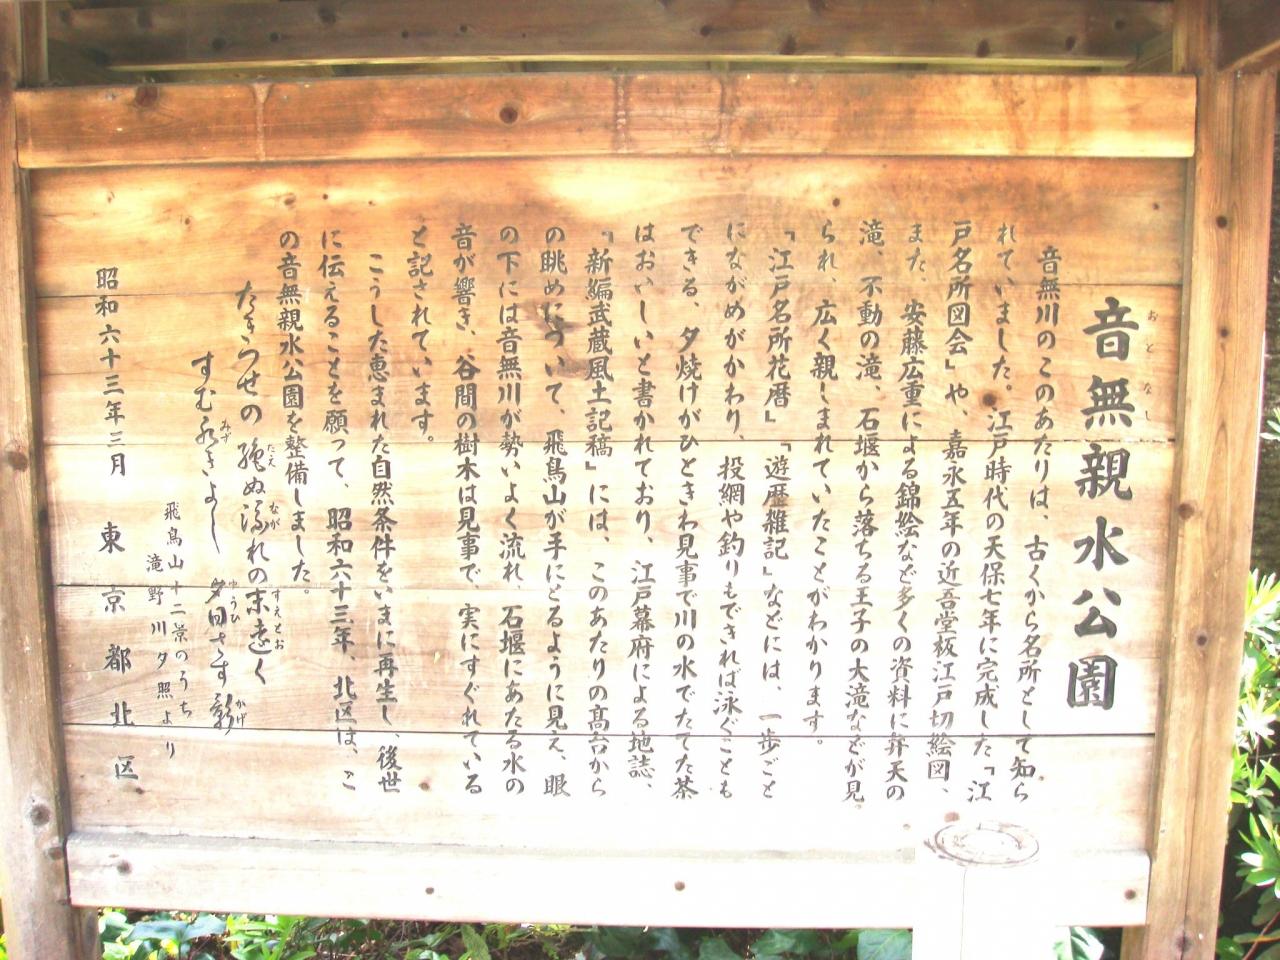 音無親水公園
おとなし
音無川のこのあたりは、古くから名所として知ら
れていました。江戸時代の天保七年に完成した「江
戸名所図会」や、嘉永五年の近吾堂板江戸切絵図、
また、安藤広重による錦絵など多くの資料に弁天の
滝、不動の滝、石堰から落ちる王子の大滝などが見
られ、広く親しまれていたことがわかります。
「江戸名所花暦」「遊歴雑記」などには、一歩ごと
にながめがかわり、投網や釣りもできれば泳ぐことも
できる、夕焼けがひときわ見事で川の水でたてた茶
はおいしいと書かれており、江戸幕府による地誌、
「新編武蔵風土記稿」には、このあたりの高台から
の眺めについて、飛鳥山が手にとるように見え、眼
の下には音無川が勢いよく流れ、石堰にあたる水の
音が響き、谷間の樹木は見事で、実にすぐれている
と記されています。
こうした恵まれた自然条件をいまに再生し、後世
に伝えることを願って、昭和六十三年、北区は、こ
の音無親水公園を整備しました。
たきらせの絶ぬ流れの末遠く
たえ なが すえとお
すむ水きよし 夕日さす影
みず ゆうひ かげ
飛鳥山十二景のうち
滝野川夕照より
昭和六十三年三月 東京都北区